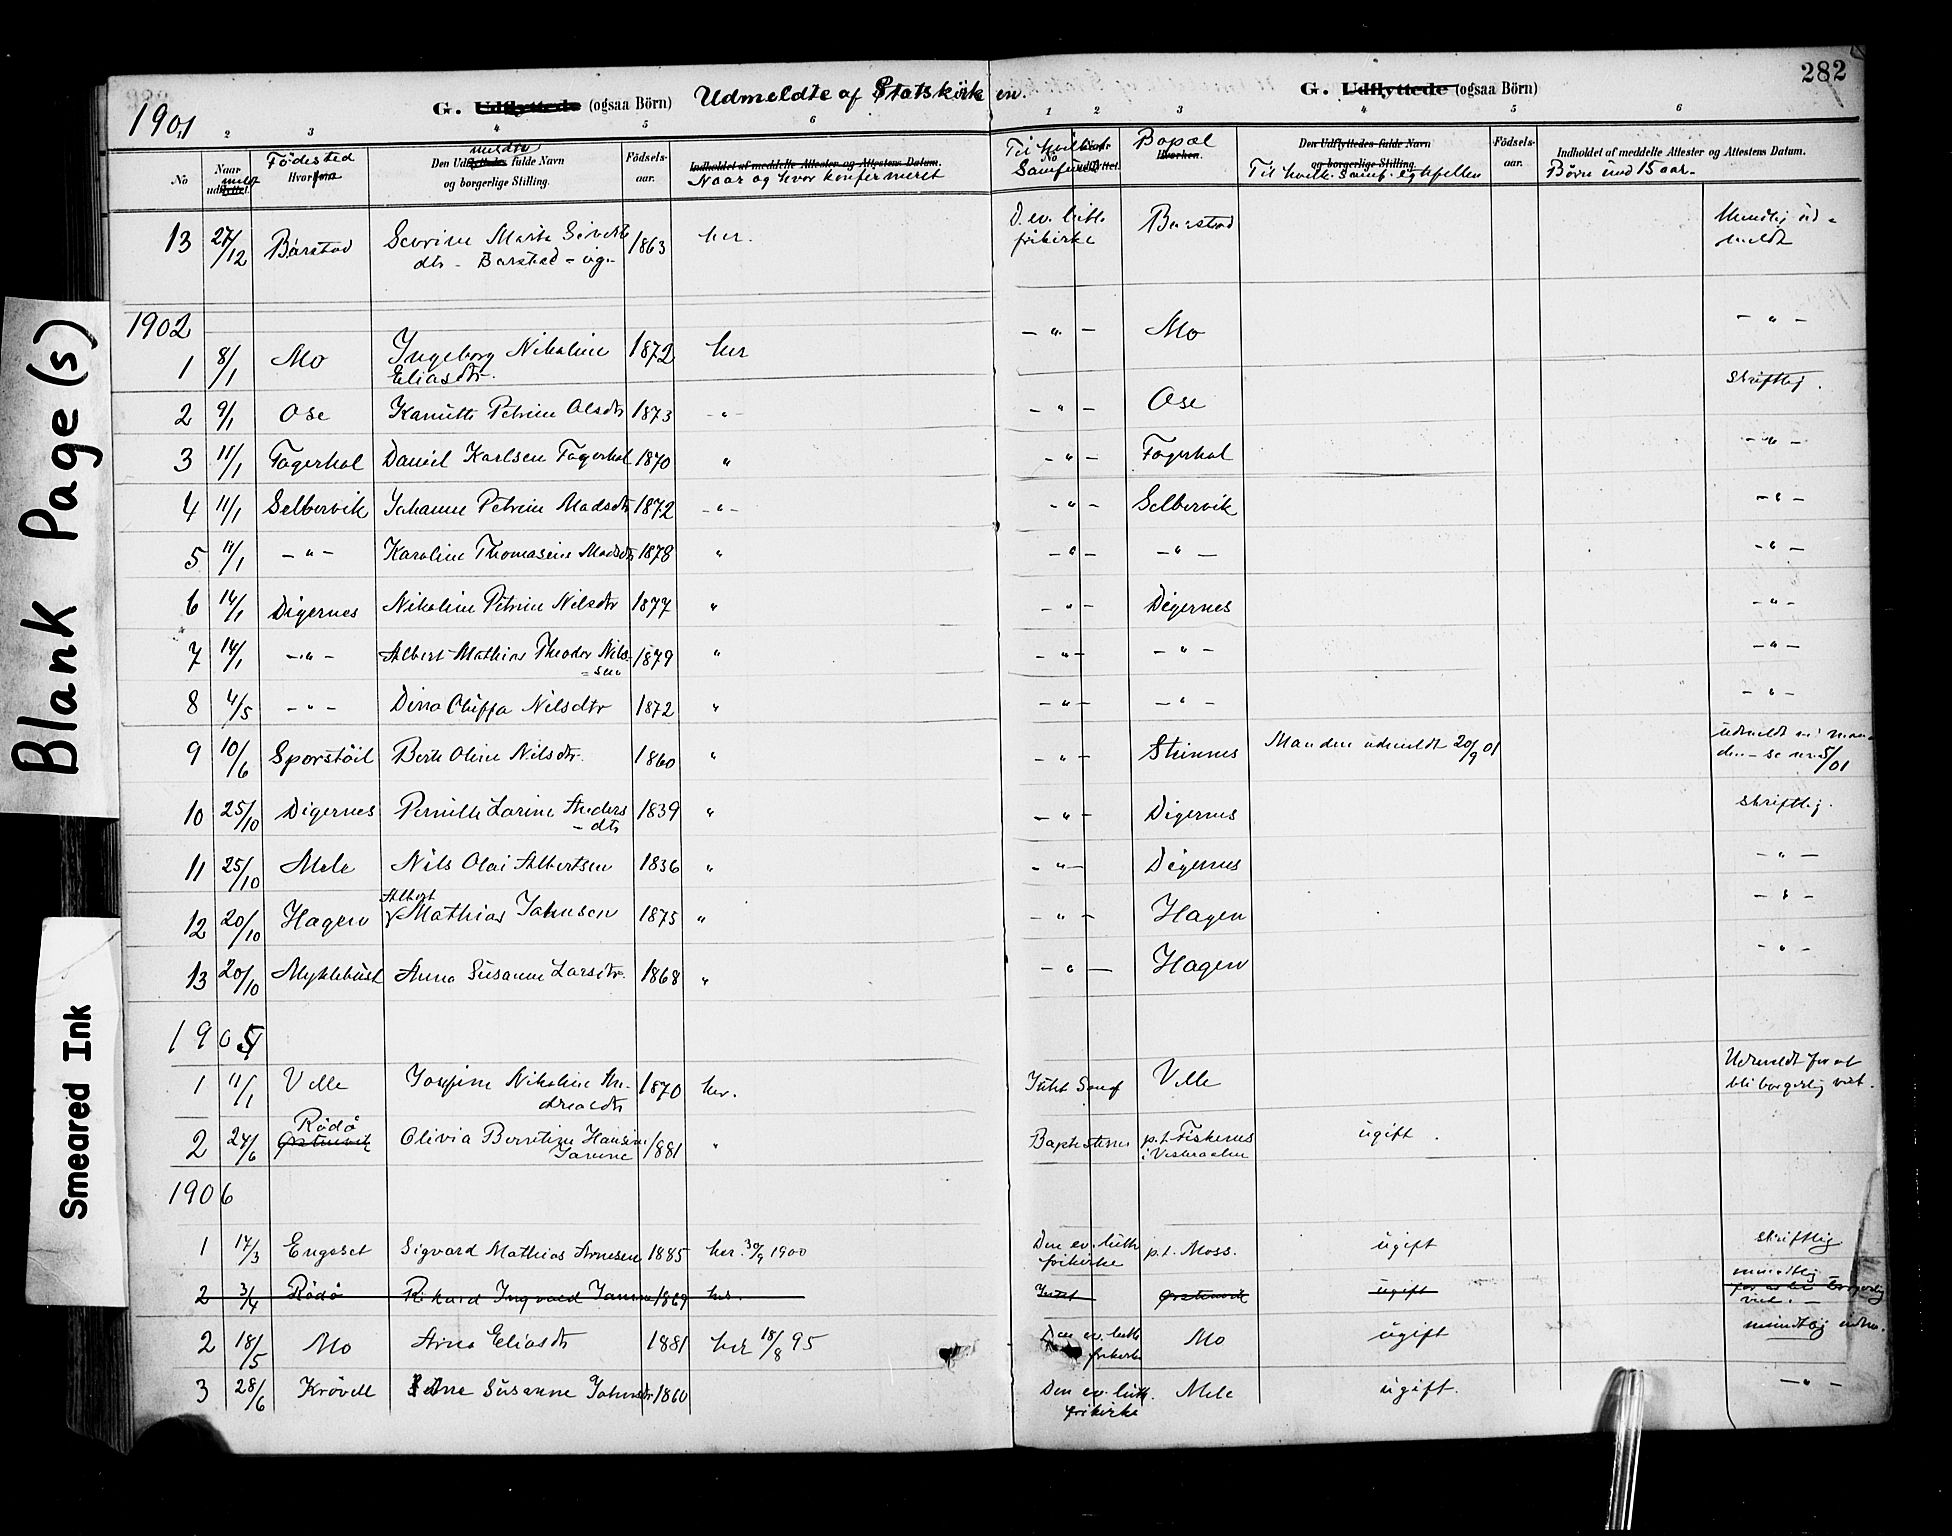 282
G. Udflyttede (ogsaa Börn) Udmeldte af Statskirken.
G. Udflyttede (ogsaa Börn)
1901
2 3 4 5 6
1 2 3 4 5 6
No
Naar udflyttet. meldt
Födested
Hvorfra
Den Udflyttedes fulde Navn og borgerlige Stilling.
meldtes
Födsels-aar.
Indholdet af meddelte Attester og Attestens Datum.
Naar og hvor konfirmeret
Til hvilket Samfund
No
Bopæl
Hvorhen.
Den Udflyttedes fulde Navn og borgerlige Stilling.
Til hvilk. Samf. Egtefellen
Födsels-aar.
Indholdet af meddelte Attester og Attestens Datum.
Börn und 15 aar.
13 27/12 Barstad Severine Marta Siverts 1863 her. D. ev. luth. Barstad Mundtlig ud-
dtr. Barstad - ug. frikirke meldt
1902
1 8/1 Mo Ingeborg Nikoline 1872 her - " - Mo - " -
Eliasdtr.
2 9/1 Ose Petrine Olsdtr 1873 - " - - " - Ose skriftlig.
3 11/1 Fagerhol Daniel Karlsen Fagerhol 1870 " - " - Fagerhol - " -
4 11/1 Selbervik Johanne Petrine Madsdtr 1872 - " - - " - Selbervik - " -
5 11/1 - " - Karoline Thomasine Madsdtr 1878 " - " - - " - - " -
6 14/1 Digernes Nikoline Petrine Nilsdtr 1877 " - " - Digernes - " -
7 14/1 - " - Albert Mathias Theodor Nils- 1879 " - " - - " - - " -
=sen
8 4/5 - " - Dina Nilsdtr 1872 " - " - - " - - " -
9 10/6 Sporstöil Berte Oline Nilsdtr. 1860 " - " - Steinnes Manden udmeldt 20/9 01 udmeldt m' man-
den - se nr 5/01
10 25/10 Digernes Pernille Larine Anders 1839 " - " - Digernes skriftlig.
- dtr
11 25/10 Mele Nils Olai Albertsen 1836 " - " - Digernes - " -
Albert
12 20/10 Hagen Mathias Johnsen 1875 " - " - Hagen - " -
13 20/10 Myklebust Anna Susanne Larsdtr. 1868 " - " - Hagen - " -
1905
1 11/1 Velle Josefine Nikoline An- 1870 her. Intet Samf Velle Udmeldt for at
dreasdtr bli borgerlig viet.
Rödö
2 24/6 Ørstenvik Olivia Berntine Hansine 1881 " Baptisterne p.t. Fiskenes ugift.
Janine i Vesteraalen
1906
1 14/3 Engeset Sigvard Mathias Arnesen 1885 her. 30/9 1900 Den ev. luth. p.t. Moss. ugift skriftlig
frikirke
mundtlig
2 3/4 Rödö Rikard Ingvald 1869 her Intet Ørstenvik ugift for at bli borgerlig
viet. -
2 18/5 Mo Anna Eliasdtr 1881 her 18/8 95 Den ev. luth. Mo ugift mundtlig udm.
frikirke
3 28/6 Krövell Ane Susanne Johnsdtr 1860 Den ev. luth. Mele ugift. - " -
frikirke
Blank Page(s)
Smeared Ink